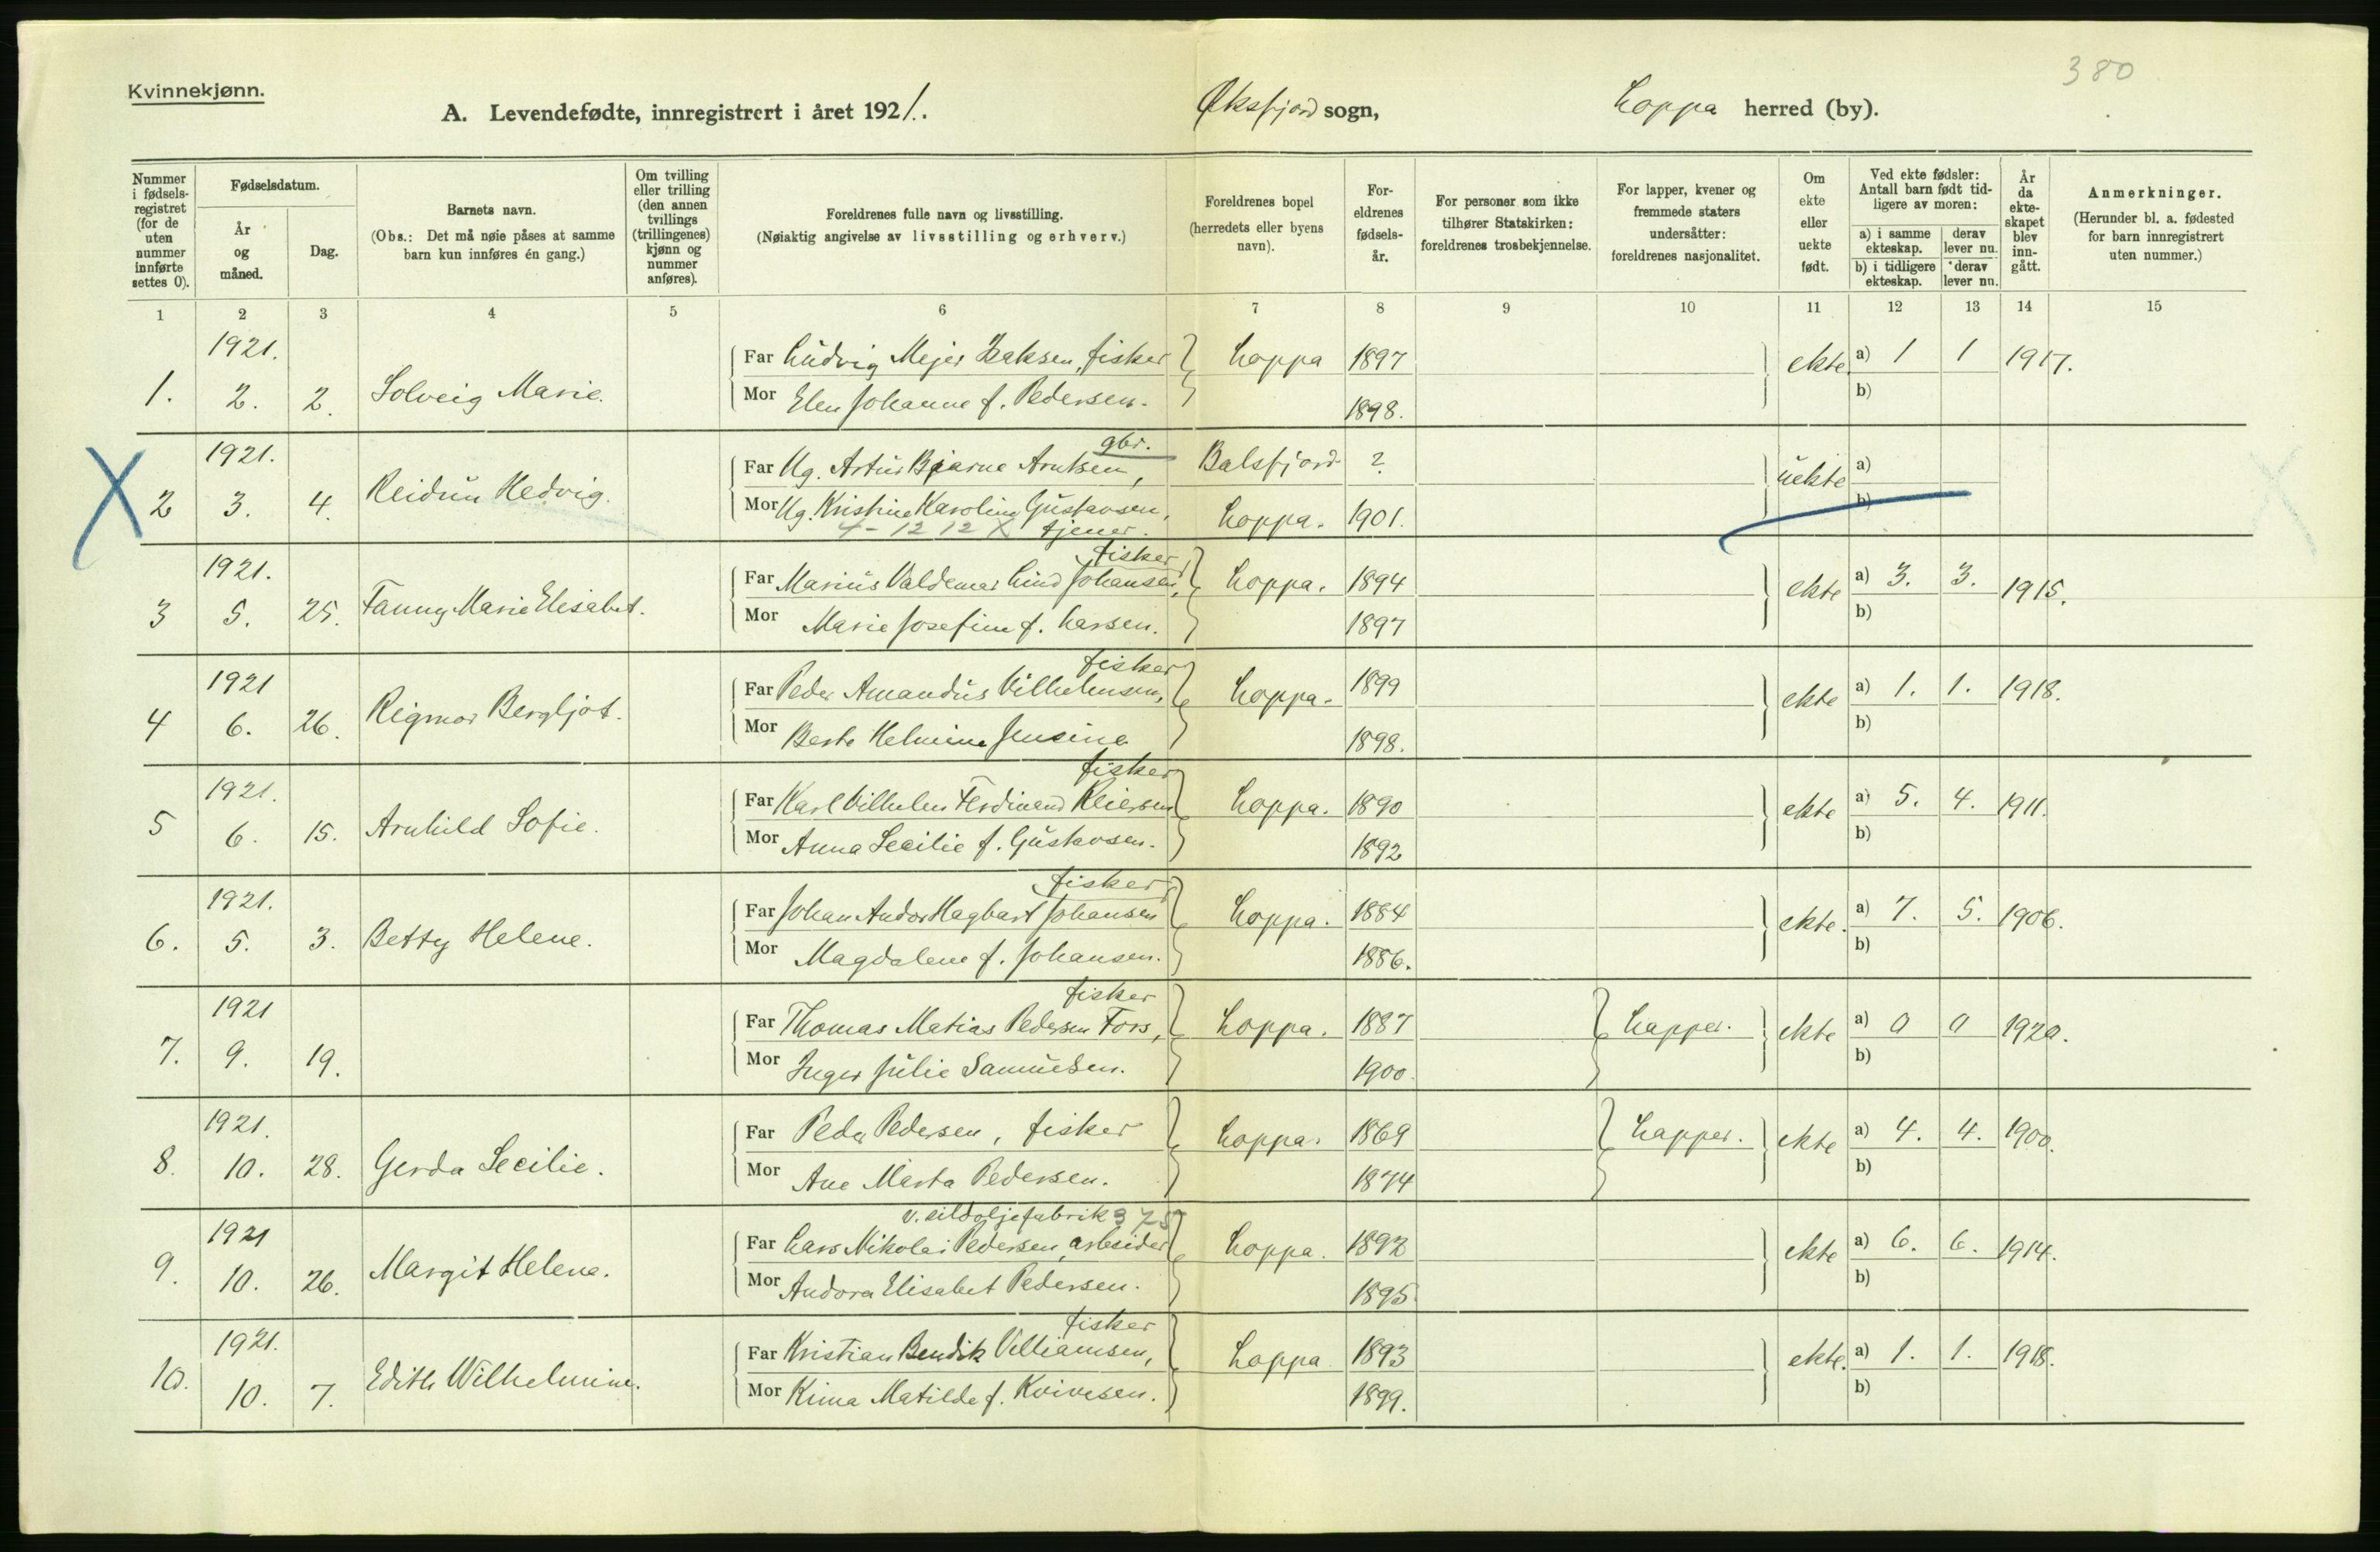 380
Kvinnekjønn.
A. Levendefødte, innregistrert i året 1921. Øksfjord sogn, Loppa herred (by).
Nummer i fødselsregistret (for de uten nummer innførte settes 0).
Fødselsdatum.
År og måned.
Dag.
Barnets navn.
(Obs.: Det må nøie påses at samme barn kun innføres én gang.)
Om tvilling eller trilling (den annen tvillings (trillingenes) kjønn og nummer anføres).
Foreldrenes fulle navn og livsstilling.
(Nøiaktig angivelse av livsstilling og erhverv.)
Foreldrenes bopel (herredets eller byens navn).
Foreldrenes fødselsår.
For personer som ikke tilhører Statskirken: foreldrenes trosbekjennelse.
For lapper, kvener og fremmede staters undersåtter: foreldrenes nasjonalitet.
Om ekte eller uekte født.
Ved ekte fødsler: Antall barn født tidligere av moren:
a) i samme ekteskap. derav lever nu.
b) i tidligere ekteskap. derav lever nu.
År da ekteskapet blev inngått.
Anmerkninger.
(Herunder bl. a. fødested for barn innregistrert uten nummer.)
1 2 3 4 5 6 7 8 9 10 11 12 13 14 15
1921.
Far Ludvig Mejer Isaksen, fisker Loppa 1897 ekte a) 1 1 1917.
1. 2. 2. Solveig Marie.
Mor Elen Johanne f. Pedersen. 1898. b)
1921. gbr.
Far Ug. Artur Bjarne Arntsen, Balsfjord ? uekte a)
2 3. 4. Reidun Hedvig.
Mor Ug. Kristine Karoline Gustavsen, Loppa. 1901. b)
4-12 12 X tjener.
1921. fisker
Far Marius Valdemar Lind Johansen, Loppa. 1894 ekte a) 3. 3. 1915.
3 5. 25. Fanny Marie Elisabet.
Mor Marie Josefine f. Larsen. 1897 b)
1921 fisker
Far Peder Amandus Vilhelmsen, Loppa. 1899 ekte a) 1. 1. 1918.
4 6. 26. Rigmor Bergljot.
Mor Berte Helmine Jensine 1898. b)
1921. fisker
Far Karl Vilhelm Ferdinand Reiersen Loppa. 1890 ekte a) 5. 4. 1911.
5 6. 15. Arnhild Sofie.
Mor Anna Secilie f. Gustavsen. 1892 b)
1921. fisker
Far Johan Andor Hagbart Johansen Loppa. 1884 ekte. a) 7. 5. 1906.
6. 5. 3. Betty Helene.
Mor Magdalene f. Johansen. 1886. b)
1921 fisker
Far Thomas Matias Pedersen Fors, Loppa. 1887 Lapper. ekte a) 0 0 1920.
7. 9. 19.
Mor Inger Julie Samuelsen. 1900. b)
1921.
Far Peder Pedersen, fisker Loppa. 1869 Lapper. ekte a) 4. 4. 1900.
8. 10. 28. Gerda Secilie.
Mor Ane Marta Pedersen. 1874 b)
1921 v. sildoljefabrik 375
Far Lars Nikolai Pedersen, arbeider Loppa. 1892 ekte a) 6. 6. 1914.
9. 10. 26. Margit Helene.
Mor Andora Elisabet Pedersen. 1895 b)
1921. fisker
Far Kristian Bendik Villiamsen, Loppa 1893 ekte. a) 1. 1. 1918.
10. 10. 7. Edith Wilhelmine.
Mor Kima Matilde f. Kvivesen. 1899. b)